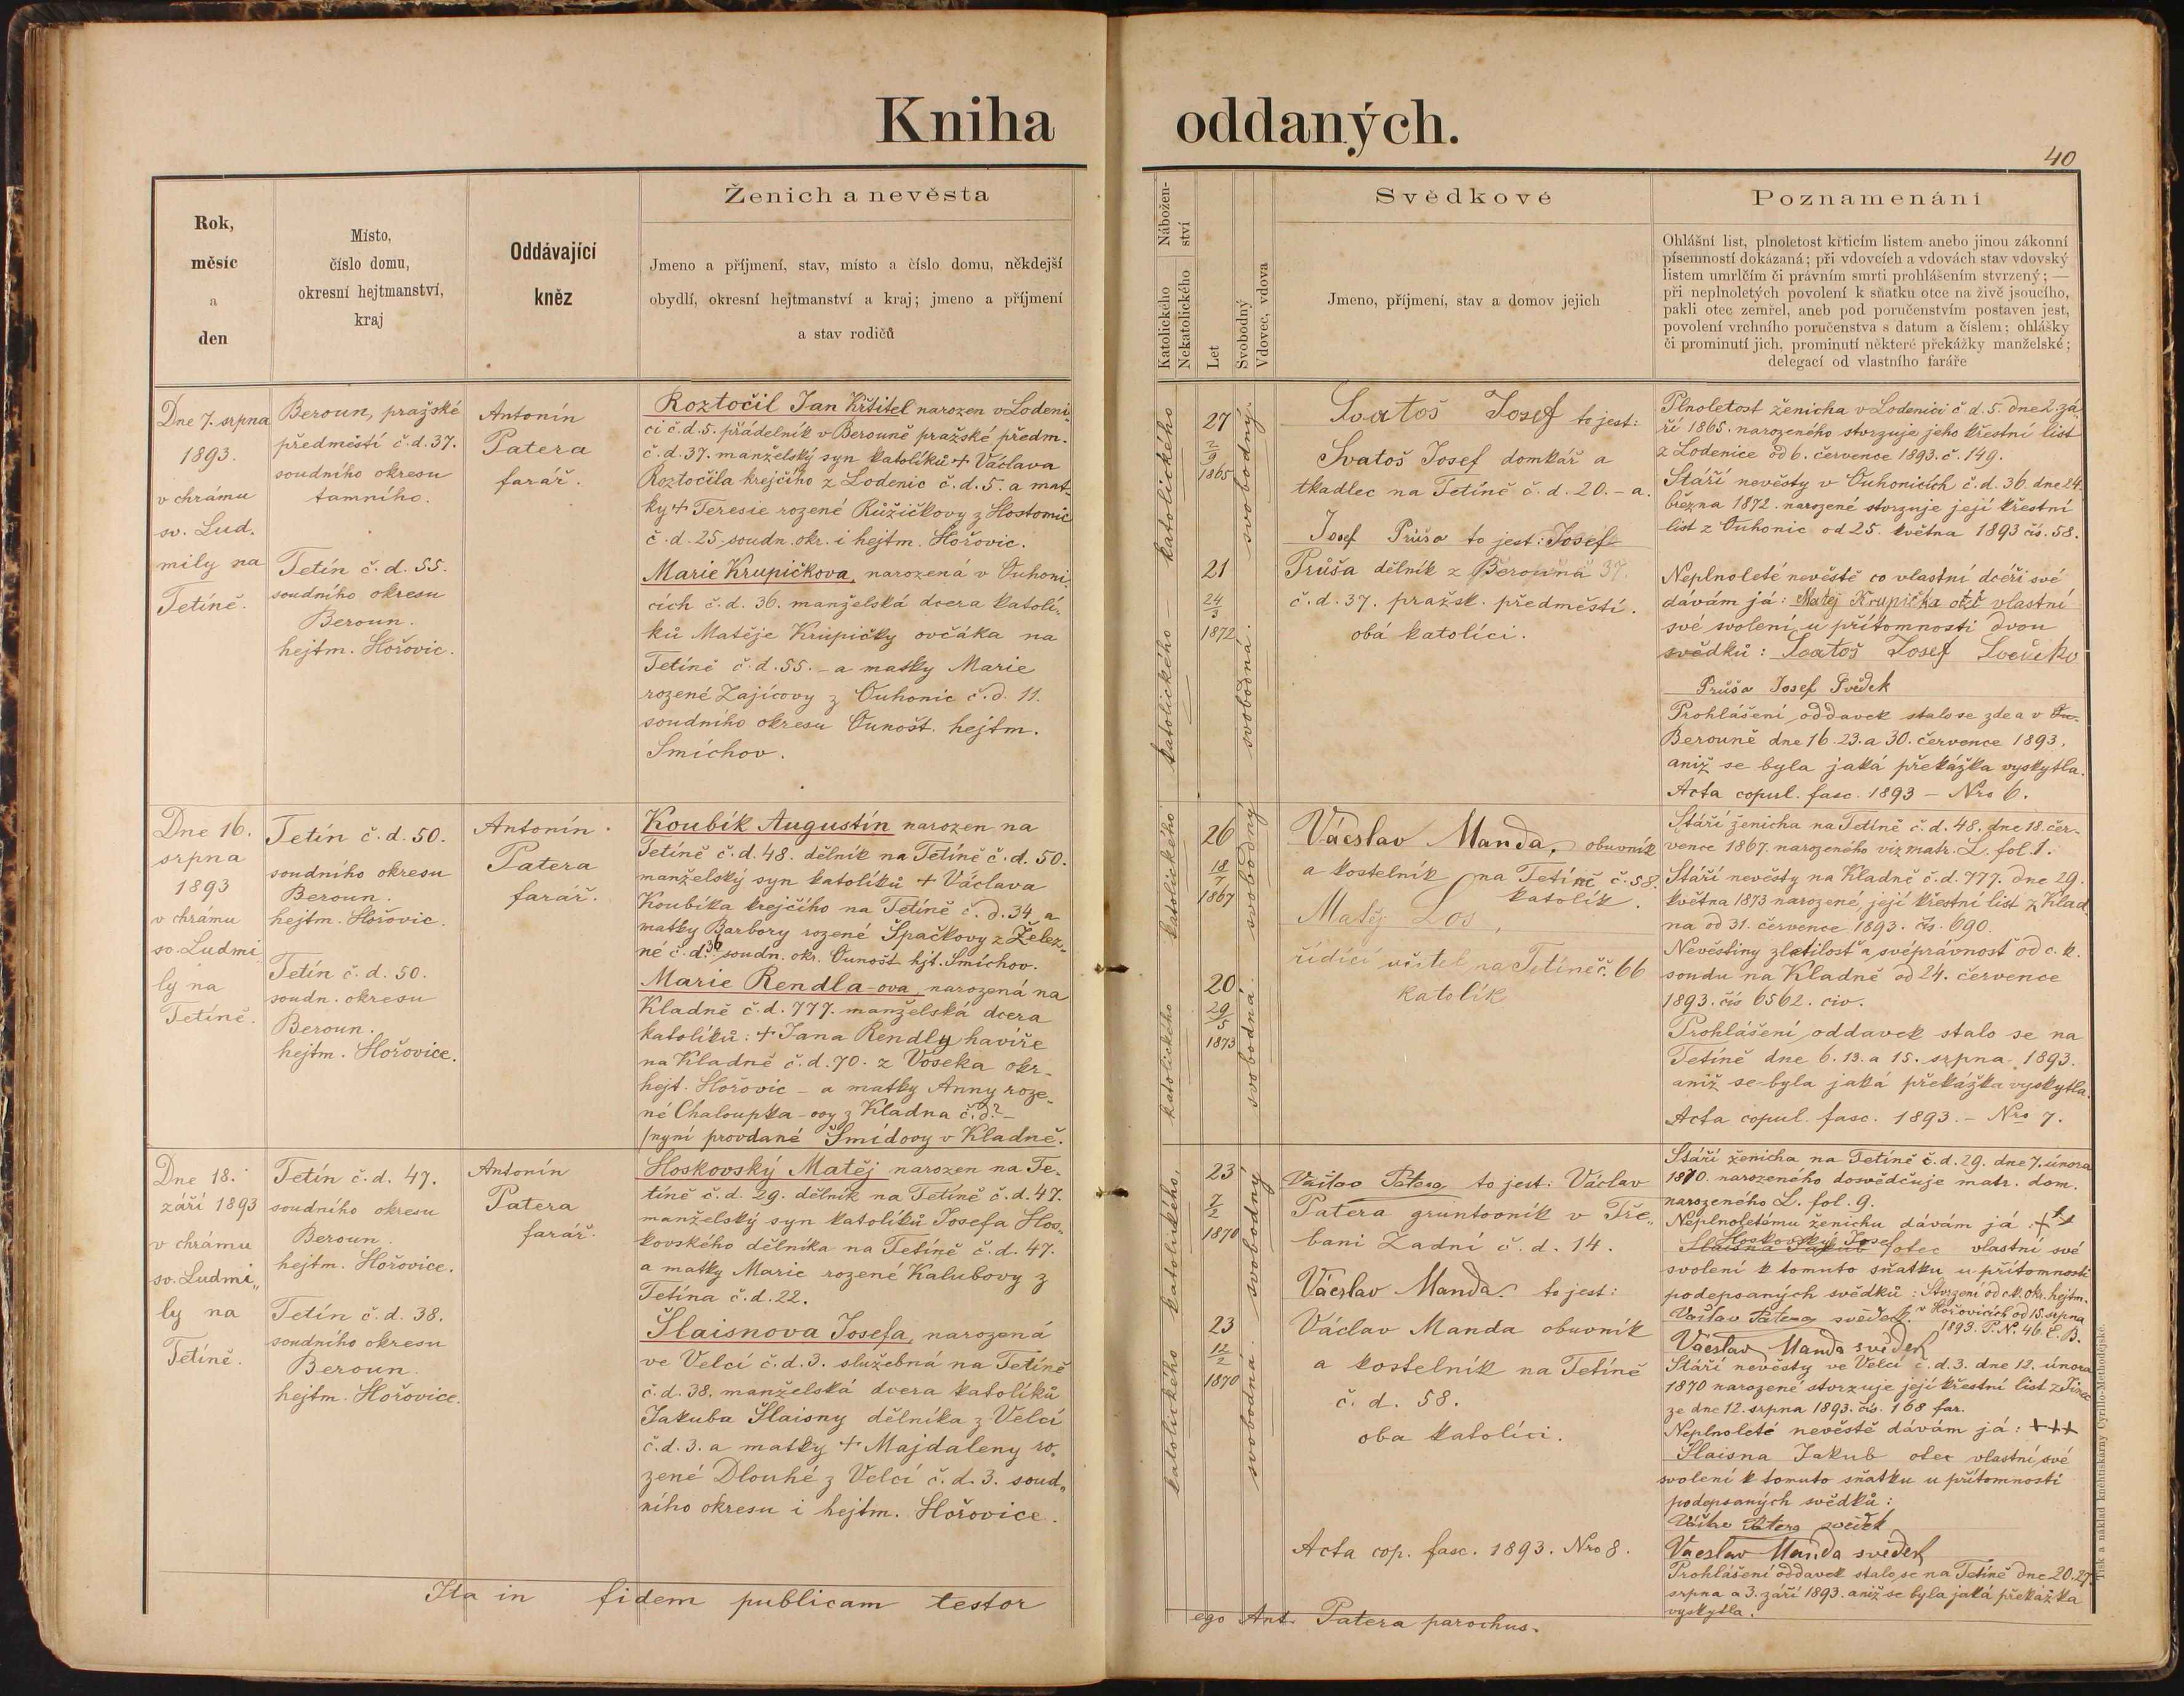 Kniha oddaných.
40
Rok,
měsíc
a
den
Místo,
číslo domu,
okresní hejtmanství,
kraj
Oddávající
kněz
Ženich a nevěsta
Jmeno a příjmení, stav, místo a číslo domu, někdejší
obydlí, okresní hejtmanství a kraj; jmeno a příjmení
a stav rodičů
Nábožen-
ství
Katolického
Nekatolického
Let
Svobodný
Vdovec, vdova
Svědkové
Jmeno, příjmení, stav a domov jejich
Poznamenání
Ohlášní list, plnoletost křticím listem anebo jinou zákonní
písemností dokázaná; při vdovcích a vdovách stav vdovský
listem umrlčím či právním smrti prohlášením stvrzený; —
při neplnoletých povolení k sňatku otce na živě jsoucího,
pakli otec zemřel, aneb pod poručenstvím postaven jest,
povolení vrchního poručenstva s datum a číslem; ohlášky
či prominutí jich, prominutí některé překážky manželské;
delegací od vlastního faráře
Dne 7. srpna
1893.
v chrámu
sv. Lud.
mily na
Tetíně.
Beroun, pražské
předměstí č.d. 37.
soudního okresu
tamního.
Tetín č. d. 55.
soudního okresu
Beroun.
hejtm. Hořovic.
Antonín
Patera
farář.
Roztočil Jan Křtitel narozen v Lodeni-
ci č.d. 5. přádelník v Berouně pražské předm.
č.d. 37. manželský syn katolíků + Václava
Roztočila krejčího z Lodenic č.d. 5. a mat-
ky + Teresie rozené Růžičkovy z Hostomic
č.d. 25 soudn. okr. i hejtm. Hořovic.
Marie Krupičkova, narozená v Ouhoni-
cích č.d. 36. manželská dcera katolí-
ků Matěje Krupičky ovčáka na
Tetíně č.d. 55. - a matky Marie
rozené Zajícovy z Ouhonic č.d. 11.
soudního okresu Ounošt. hejtm.
Smíchov.
katolického
katolického
27
2/9
1865
21
24/3
1872
svobodný.
svobodná.
Svatoš Josef to jest:
Svatoš Josef domkář a
tkadlec na Tetíně č.d. 20. - a.
Josef Průša to jest: Josef
Průša dělník z Berouna 37.
č.d. 37. pražsk. předměstí.
obá katolíci.
Plnoletost ženicha v Lodenici č d. 5. dne 2. zá-
ří 1865. narozeného stvrzuje jeho křestní list
z Lodenice od 6. července 1893. č. 149.
Stáří nevěsty v Ouhonicích č.d. 36. dne 24.
března 1872. narozené stvrzuje její křestní
list z Ouhonic od 25. května 1893 čís. 58.
Neplnoleté nevěstě co vlastní dceři své
dávám já: Matěj Krupička otec vlastní
své svolení u přítomnosti dvou
svědků: Svatoš Josef
Průša Josef Svědek
Prohlášení oddavek stalo se zde a v Ou-
Berouně dne 16. 23. a 30. července 1893.
aniž se byla jaká překážka vyskytla.
Acta copul. fasc. 1893 — Nro 6.
Dne 16.
srpna
1893
v chrámu
sv. Ludmi
ly na
Tetíně.
Tetín č.d. 50.
soudního okresu
Beroun.
hejtm. Hořovic.
Tetín č.d. 50.
soudn. okresu
Beroun.
hejtm. Hořovice.
Antonín
Patera
farář.
Koubík Augustin narozen na
Tetíně č.d. 48. dělník na Tetíně č.d. 50.
manželský syn katolíků + Václava
Koubíka krejčího na Tetíně č.d. 34. a
matky Barbory rozené Špačkovy z Želez-
né č.d. 36. soudn. okr. Ounošt hjt. Smíchov.
Marie Rendla-ova, narozená na
Kladně č.d. 777. manželská dcera
katolíků: + Jana Rendly havíře
na Kladně č.d. 70. z Voseka okr-
hejt. Hořovic - a matky Anny roze-
né Chaloupka-ovy z Kladna č.d.? -
/nyní provdané Šmídovy v Kladně.
katolického
katolického
26
18/7
1867
20
29/5
1873
svobodný
svobodná.
Vácslav Manda, obuvník
a kostelník na Tetíně č. 58.
katolík.
Matěj Los,
řídící učitel na Tetíně č. 66
katolík
Stáří ženicha na Tetíně č.d. 48. dne 18. čer-
vence 1867. narozeného viz matr. L. fol. 1.
Stáří nevěsty na Kladně č.d. 777. dne 29.
května 1873 narozené, její křestní list z Klad
na od 31. července 1893. čís. 690.
Nevěstiny zletilost a svéprávnost od c. k.
soudu na Kladně od 24. července
1893. čís 6562. civ.
Prohlášení oddavek stalo se na
Tetíně dne 6. 13. a 15. srpna 1893.
aniž se byla jaká překážka vyskytla.
Acta copul. fasc. 1893. - Nro 7.
Dne 18.
září 1893
v chrámu
sv. Ludmi„
ly na
Tetíně.
Tetín č.d. 47.
soudního okresu
Beroun.
hejtm. Hořovice.
Tetín č.d. 38.
soudního okresu
Beroun.
hejtm. Hořovice.
Antonín
Patera
farář.
Hoskovský Matěj narozen na Te-
tíně č.d. 29. dělník na Tetíně č.d. 47.
manželský syn katolíků Josefa Hos-
kovského dělníka na Tetíně č.d. 47.
a matky Marie rozené Kalubovy z
Tetína č.d. 22.
Šlaisnova Josefa, narozená
ve Velcí č.d. 3. služebná na Tetíně
č.d. 38. manželská dcera katolíků
Jakuba Šlaisny dělníka z Velcí
č.d. 3. a matky + Majdaleny ro-
zené Dlouhé z Velcí č.d. 3. soud„
ního okresu i hejtm. Hořovice.
katolického
katolického
23
7/2
1870
23
12/2
1870
svobodný
svobodná.
Patera to jest: Václav
Patera gruntovník v Tře„
bani Zadní č.d. 14.
Vácslav Manda. to jest:
Václav Manda obuvník
a kostelník na Tetíně
č. d. 58.
oba katolíci.
Acta cop. fasc. 1893. Nro 8.
Stáří ženicha na Tetíně č.d. 29. dne 7. února
1870. narozeného dosvědčuje matr. dom.
narozeného L. fol. 9.
Neplnoletému ženichu dávám já: +++
Hoskovský Josef
Šlaisna Jakub otec vlastní své
svolení k tomuto sňatku u přítomnosti
podepsaných svědků: Stvrzení od c.k. okr. hejtm.
v Hořovicích od 15. srpna
Patera svědek. 1893. P. N. 46. E. B.
Vácslav Manda svědek
Stáří nevěsty ve Velcí č.d. 3. dne 12. února
1870 narozené stvrzuje její křestní list z
ze dne 12. srpna 1893. čís. 168 far.
Neplnoleté nevěstě dávám já: +++
Šlaisna Jakub otec vlastní své
svolení k tomuto sňatku u přítomnosti
podepsaných svědků:
Patera svědek
Vácslav Manda svědek
Prohlášení oddavek stalo se na Tetíně dne 20. 27.
srpna a 3. září 1893. aniž se byla jaká překážka
vyskytla.
Ita in fidem publicam testor
ego Ant. Patera parochus.
Tisk a náklad knihtiskárny Cyrillo-Methodějské.